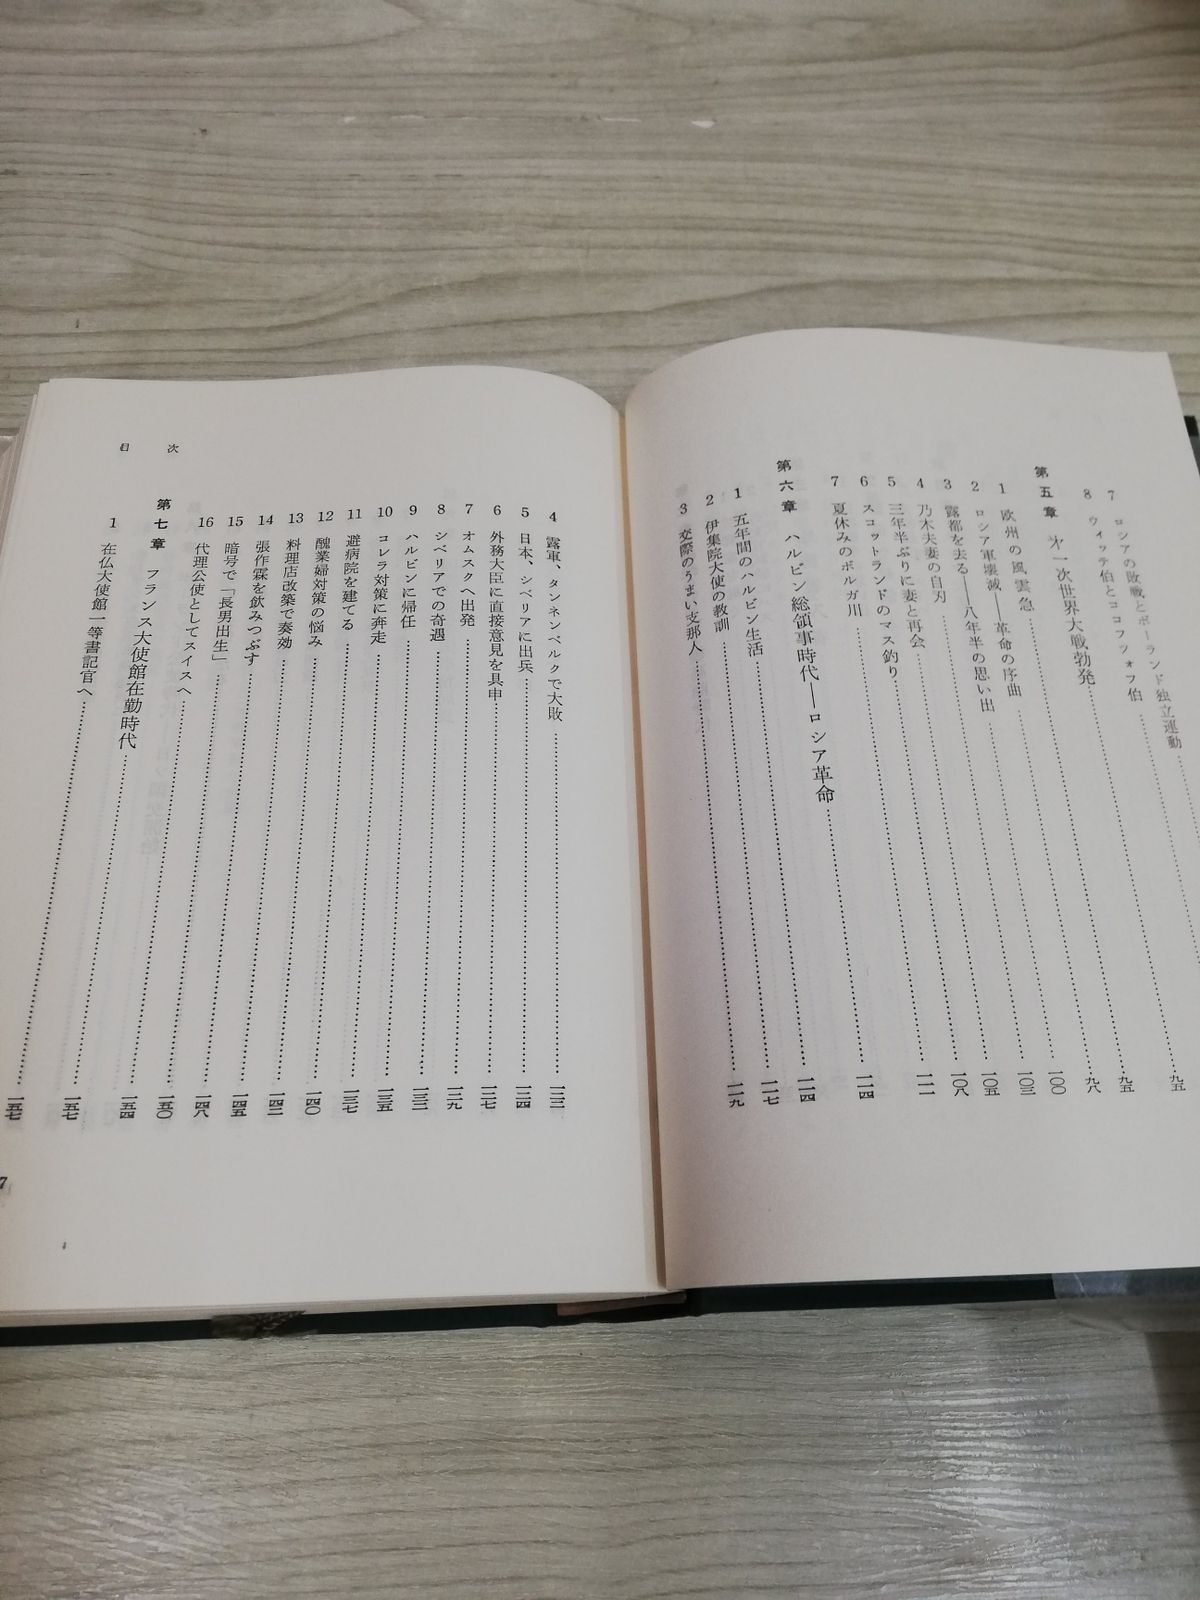 7 ロシアの敗戦とポーランド独立運動
8 ウィッテ伯とココフツォフ伯
第五章 第一次世界大戦勃発 九五
1 欧州の風雲急 九五
2 ロシア軍壊滅――革命の序曲 九八
3 露都を去る――八年半の思い出 一〇〇
4 乃木夫妻の自刃 一〇三
5 三年半ぶりに妻と再会 一〇五
6 スコットランドのマス釣り 一〇八
7 夏休みのボルガ川 一一一
第六章 ハルビン総領事時代――ロシア革命 一一四
1 五年間のハルビン生活 一一四
2 伊集院大使の教訓 一一七
3 交際のうまい支那人 一一九
目次
4 露軍、タンネンベルクで大敗 一二二
5 日本、シベリアに出兵 一二四
6 外務大臣に直接意見を具申 一二七
7 オムスクへ出発 一二九
8 シベリアでの奇遇 一三三
9 ハルビンに帰任 一三五
10 コレラ対策に奔走 一三七
11 避病院を建てる 一四〇
12 醜業婦対策の悩み 一四二
13 料理店改築で奏効 一四五
14 張作霖を飲みつぶす 一四八
15 暗号で「長男出生」 一五〇
16 代理公使としてスイスへ 一五四
第七章 フランス大使館在勤時代 一五七
1 在仏大使館一等書記官へ 一五七
7